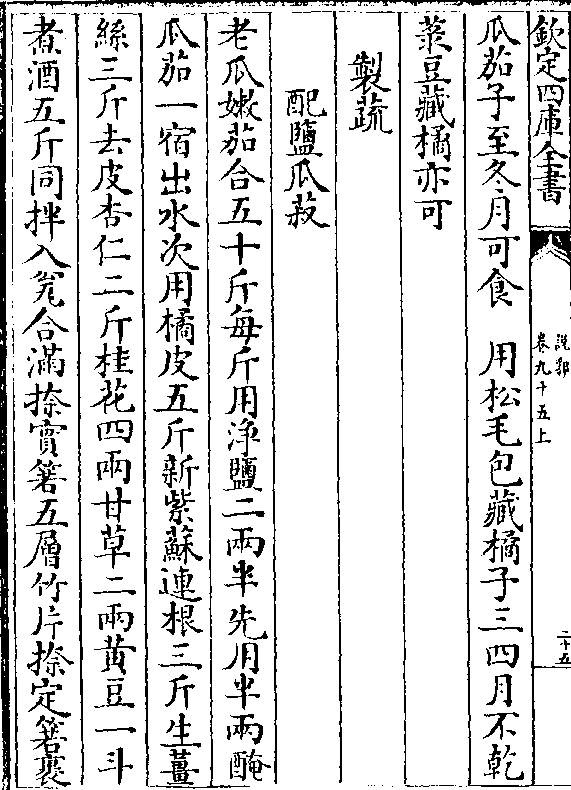 欽定四庫全書
說郛
卷九十五上
二十五
瓜茄子至冬月可食　用松毛包藏橘子三四月不乾
菉豆藏橘亦可
製蔬
配鹽瓜菽
老瓜嫩茄合五十斤每斤用淨鹽二兩半先用半兩醃
瓜茄一宿出水次用橘皮五斤新紫蘇連根三斤生薑
絲三斤去皮杏仁二斤桂花四兩甘草二兩黃豆一斗
煮酒五斤同拌入瓮合滿捺實箬五層竹片捺定箬裹